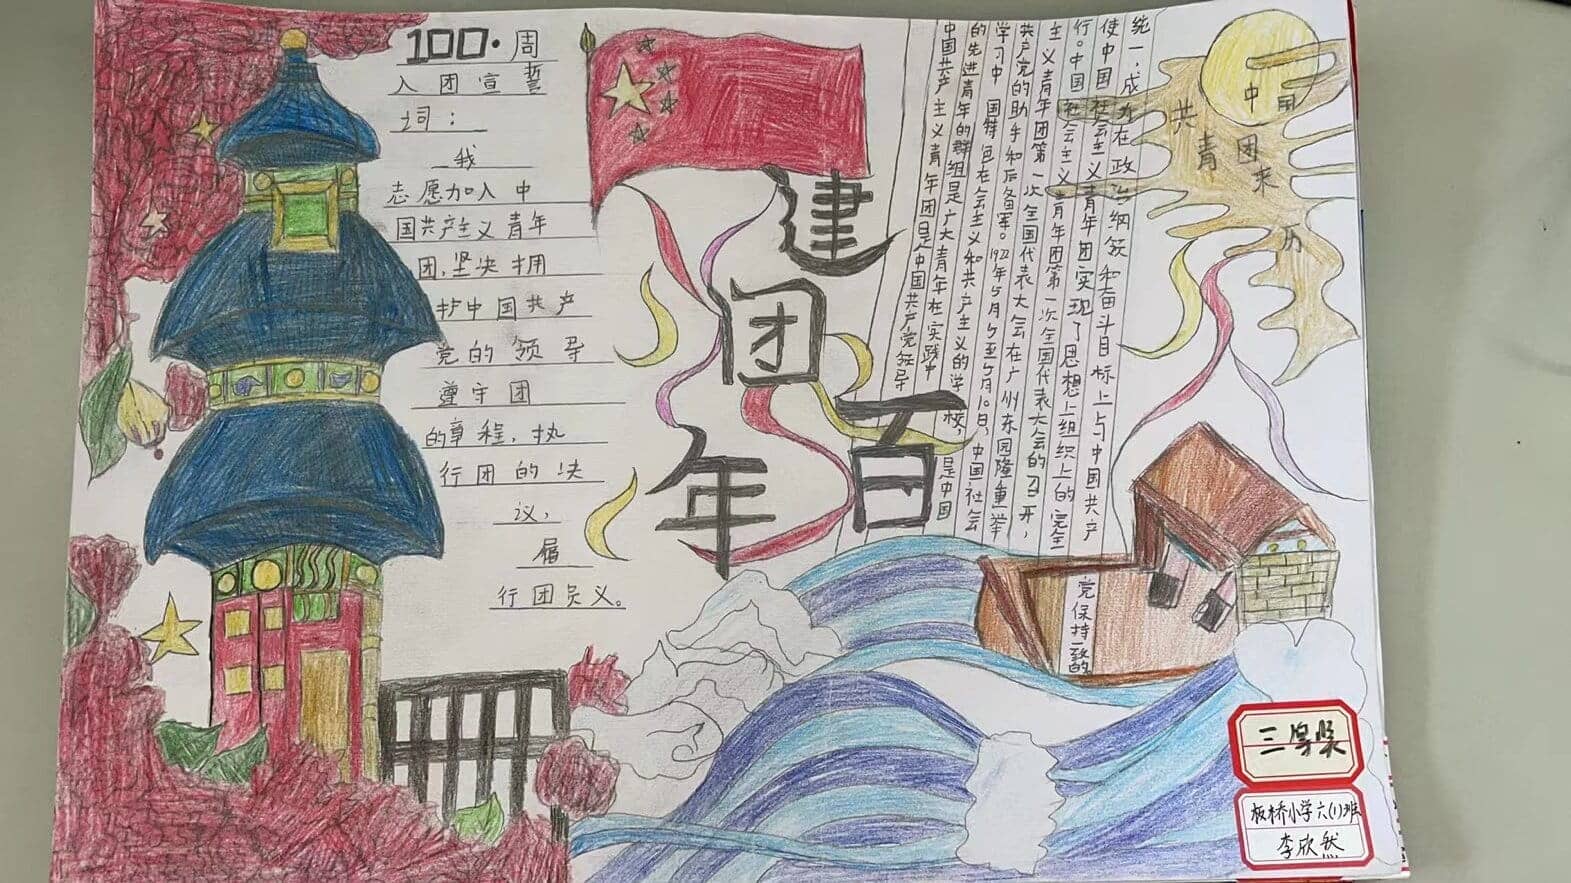 100·周
入团宣誓
词：
我
志愿加入中
国共产主义青年
团，坚决拥
护中国共产
党的领导
遵守团
的章程，执
行团的决
议，
履
行团员义。
建
团
百
年
中国共产主义青年团是中国共产党领导
的先进青年的群组是广大青年在实践中
学习中国特色社会主义和共产主义的学校，是中国
共产党的助手和后备军。1922年5月5至5月10日，中国社会
主义青年团第一次全国代表大会在广州东园隆重举
行。中国社会主义青年团第一次全国代表大会的召开，
使中国社会主义青年团实现了思想上组织上的完全
统一，成为在政治纲领和奋斗目标上与中国共产
党保持一致的
中
共青
团来历
三等奖
板桥小学六(1)班
李欣然